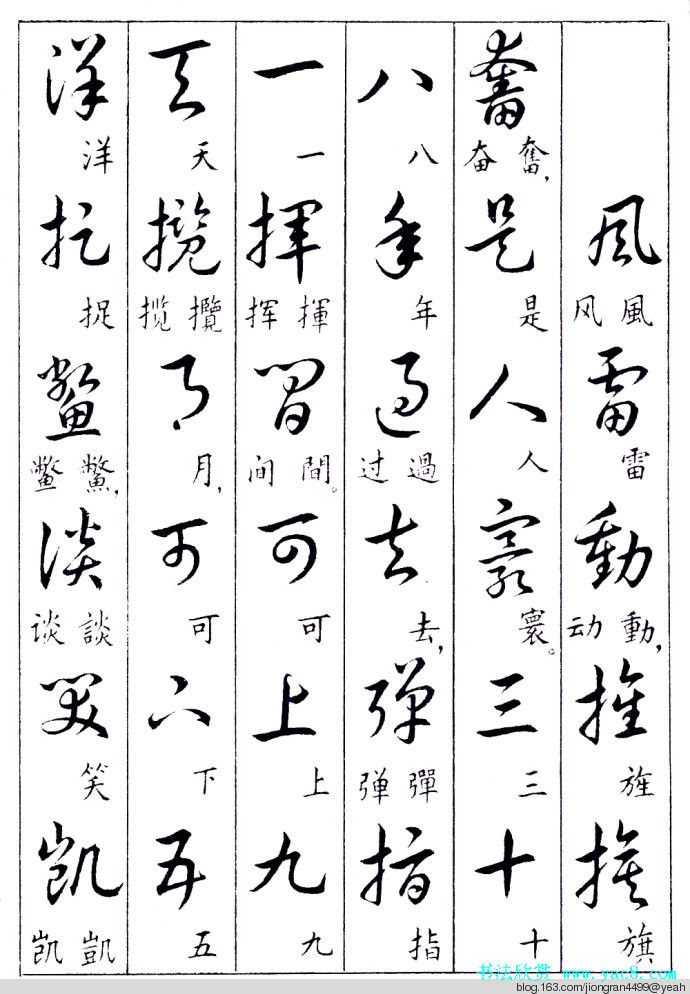 風雷動旌旗
風风 雷 動，动 旌 旗
奮是人寰三十
奮，奋 是 人 寰。 三 十
八年過去彈指
八 年 過过 去， 彈弹 指
一揮間可上九
一 揮挥 間。间 可 上 九
天攬月可下五
天 攬揽 月， 可 下 五
洋捉鱉談笑凱
洋 捉 鱉，鳖 談谈 笑 凱凯
书法欣赏 www.yac8.com
blog.163.com/jiongran4499@yeah